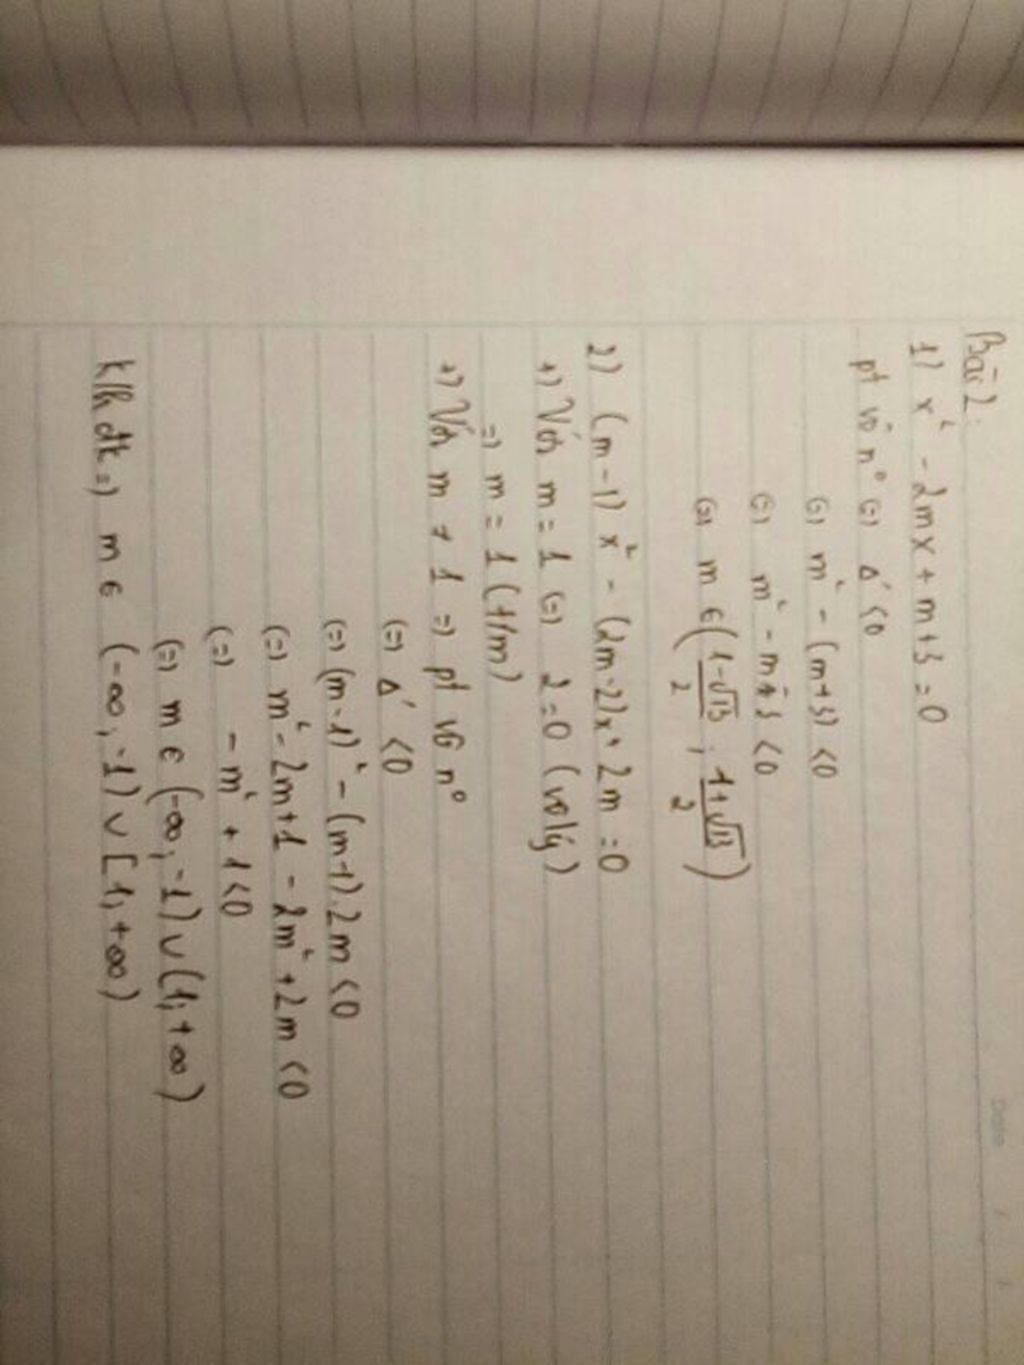 Bài 2:
1) x² - 2mx + m+3 = 0
pt vô n° (=) Δ' <0
(=) m² - (m+3) <0
(=) m² - m - 3 <0
(=) m ∈ (1-√13/2 ; 1+√13/2)
2) (m-1) x² - (2m-2)x + 2m = 0
+) Với m = 1 (=) 2=0 (vô lý)
=) m = 1 (t/m)
+) Với m ≠ 1 =) pt vô n°
(=) Δ' <0
(=) (m-1)² - (m-1).2m <0
(=) m² - 2m+1 - 2m² + 2m <0
(=) - m² + 1 <0
(=) m ∈ (-∞; -1) ∪ (1; +∞)
k/h đk =) m ∈ (-∞; -1) ∪ [1; +∞)
Date / /